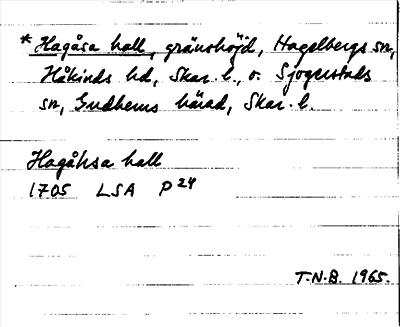 * Hagåsa hall, gränshöjd, Hagelbergs sn,
Håkinds hd, Skar. l., o. Sjogerstads
sn, Gudhems härad, Skar. l.
Hagåhsa hall
1705 LSA P 24
T.N.B. 1965.